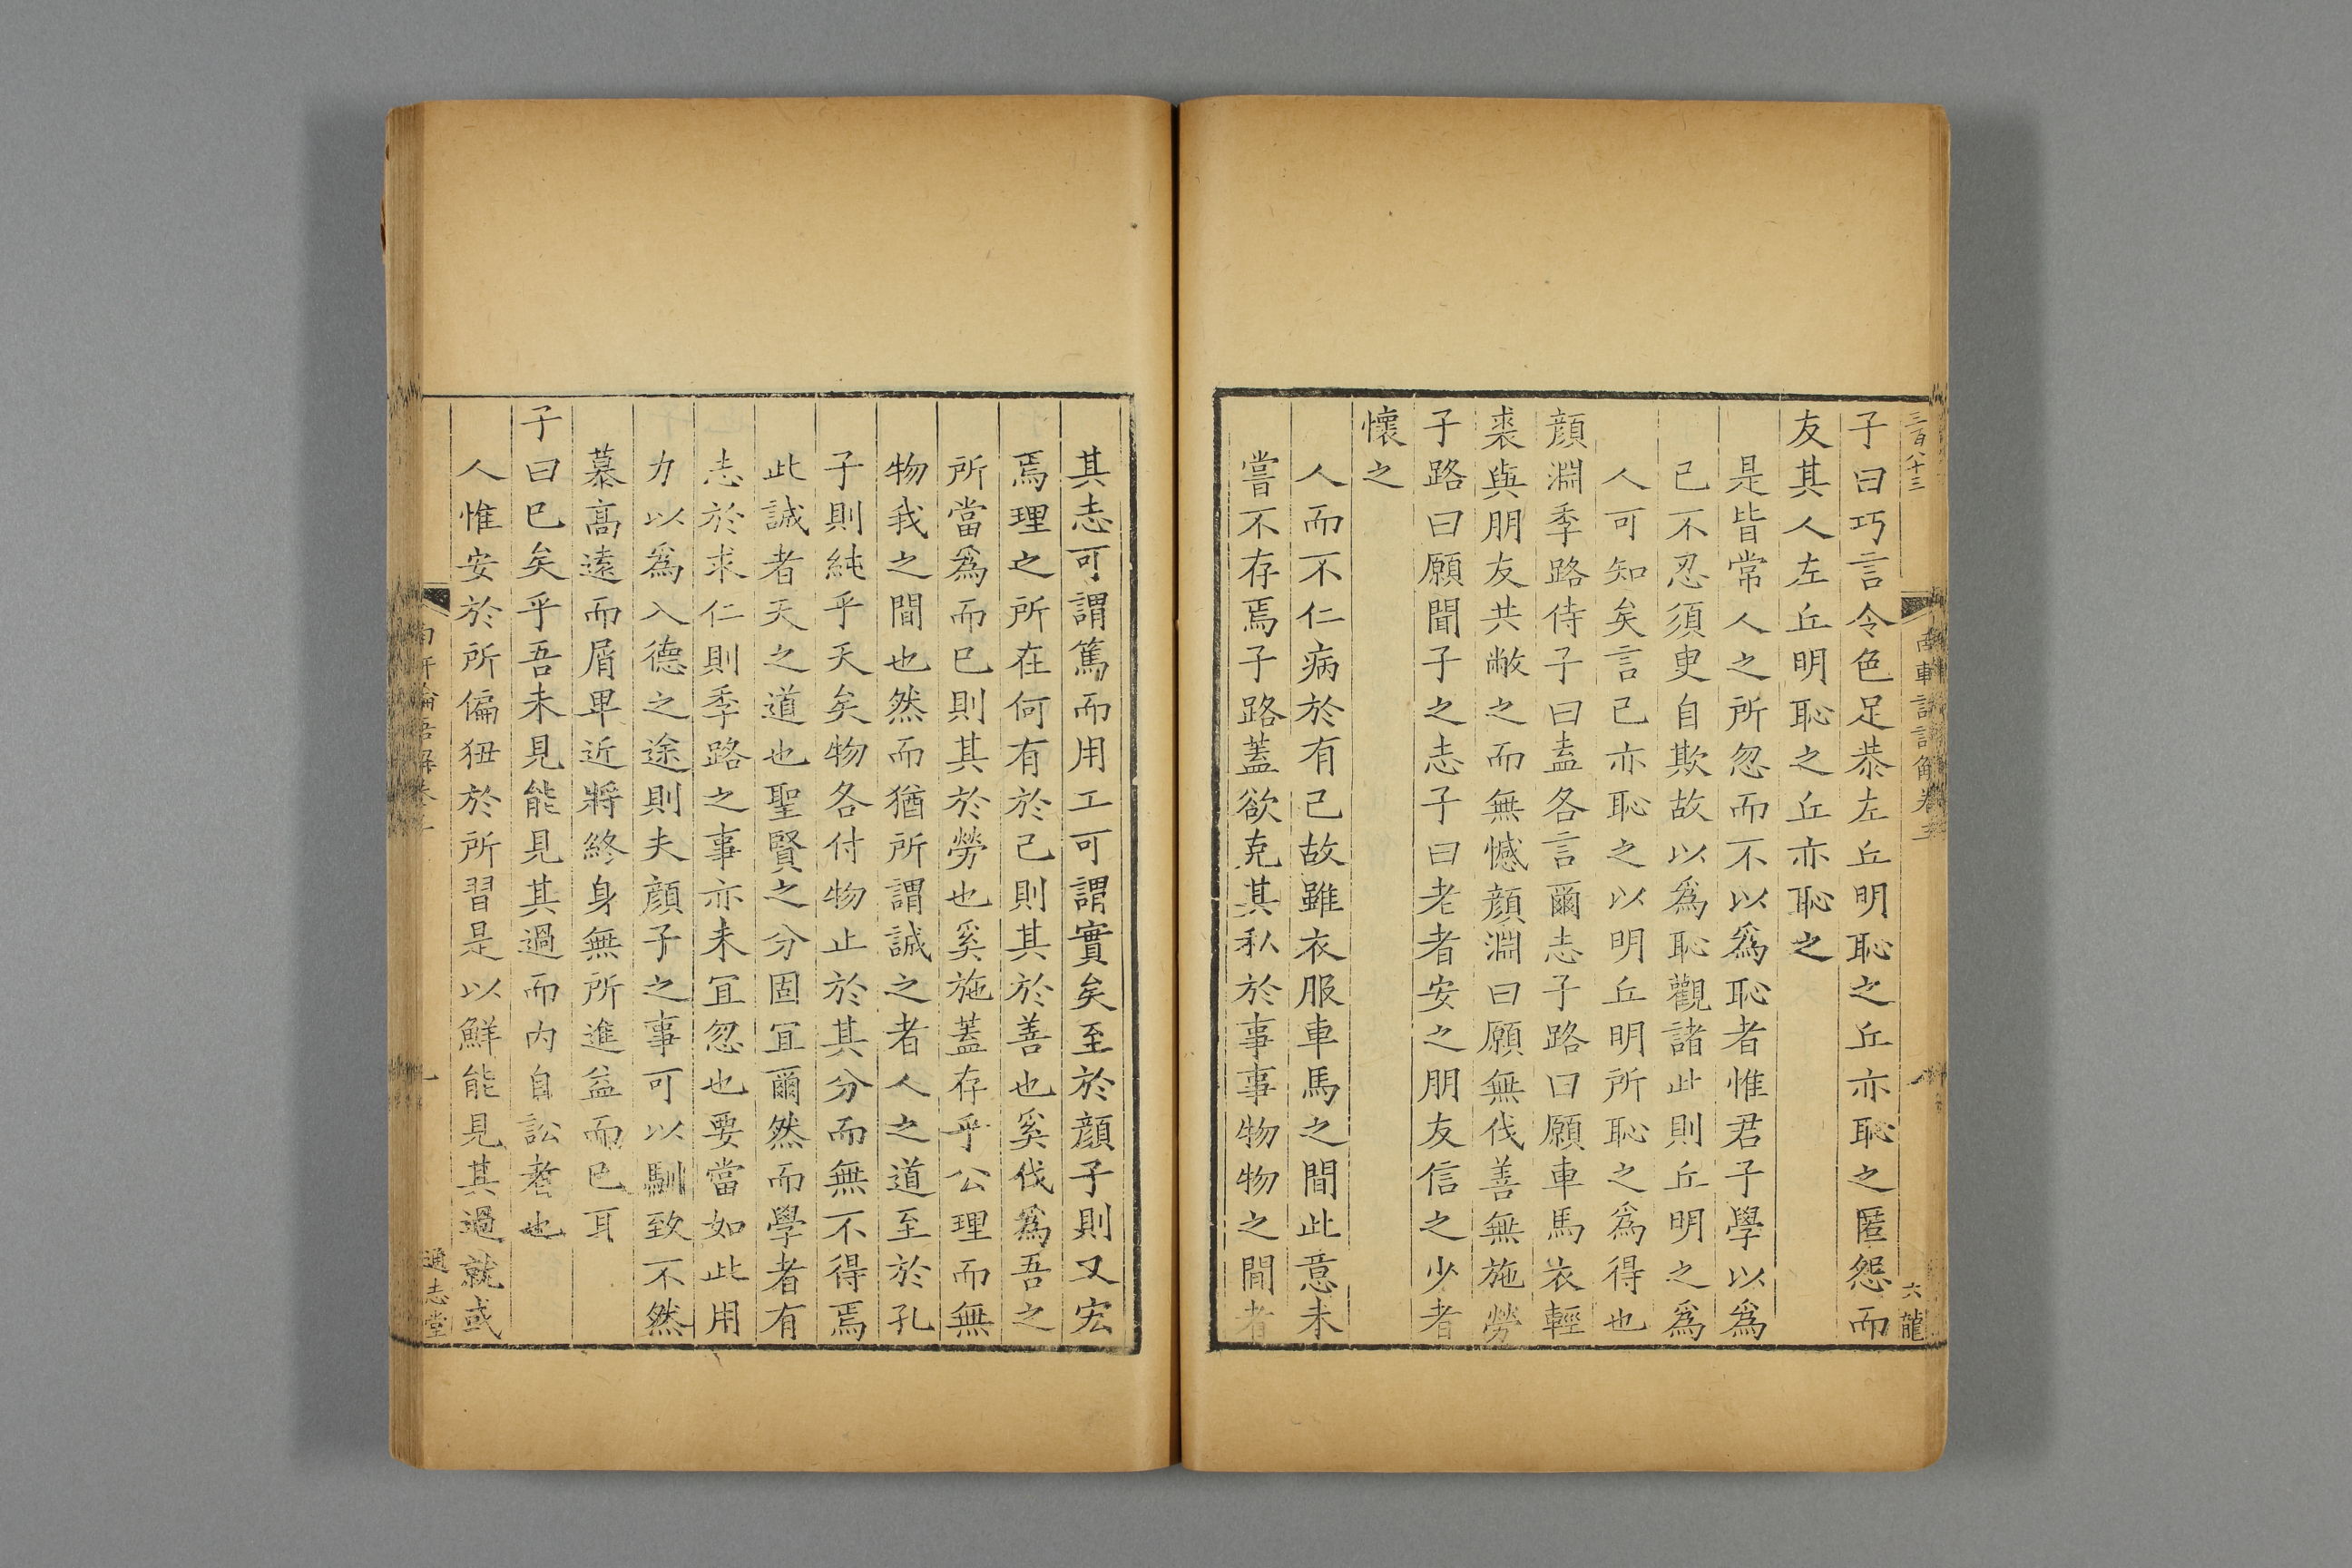 三百八十三
子曰巧言令色足恭左丘明恥之丘亦恥之匿怨而
友其人左丘明恥之丘亦恥之
是皆常人之所忽而不以爲恥者惟君子學以爲
己不忍須臾自欺故以爲恥觀諸此則丘明之爲
人可知矣言己亦恥之以明丘明所恥之爲得也
顔淵季路侍子曰盍各言爾志子路曰願車馬衣輕
裘與朋友共敝之而無憾顔淵曰願無伐善無施勞
子路曰願聞子之志子曰老者安之朋友信之少者
懷之
人而不仁病於有己故雖衣服車馬之間此意未
嘗不存焉子路蓋欲克其私於事事物物之間者
六 龍
其志可謂篤而用工可謂實矣至於顔子則又宏
焉理之所在何有於己則其於善也奚伐爲吾之
所當爲而已則其於勞也奚施蓋存乎公理而無
物我之間也然而猶所謂誠之者人之道至於孔
子則純乎天矣物各付物止於其分而無不得焉
此誠者天之道也聖賢之分固冝爾然而學者有
志於求仁則季路之事亦未冝忽也要當如此用
力以爲入德之途則夫顔子之事可以馴致不然
慕髙遠而屑卑近將終身無所進益而已耳
子曰已矣乎吾未見能見其過而内自訟者也
人惟安於所偏狃於所習是以鮮能見其過就或
通志堂